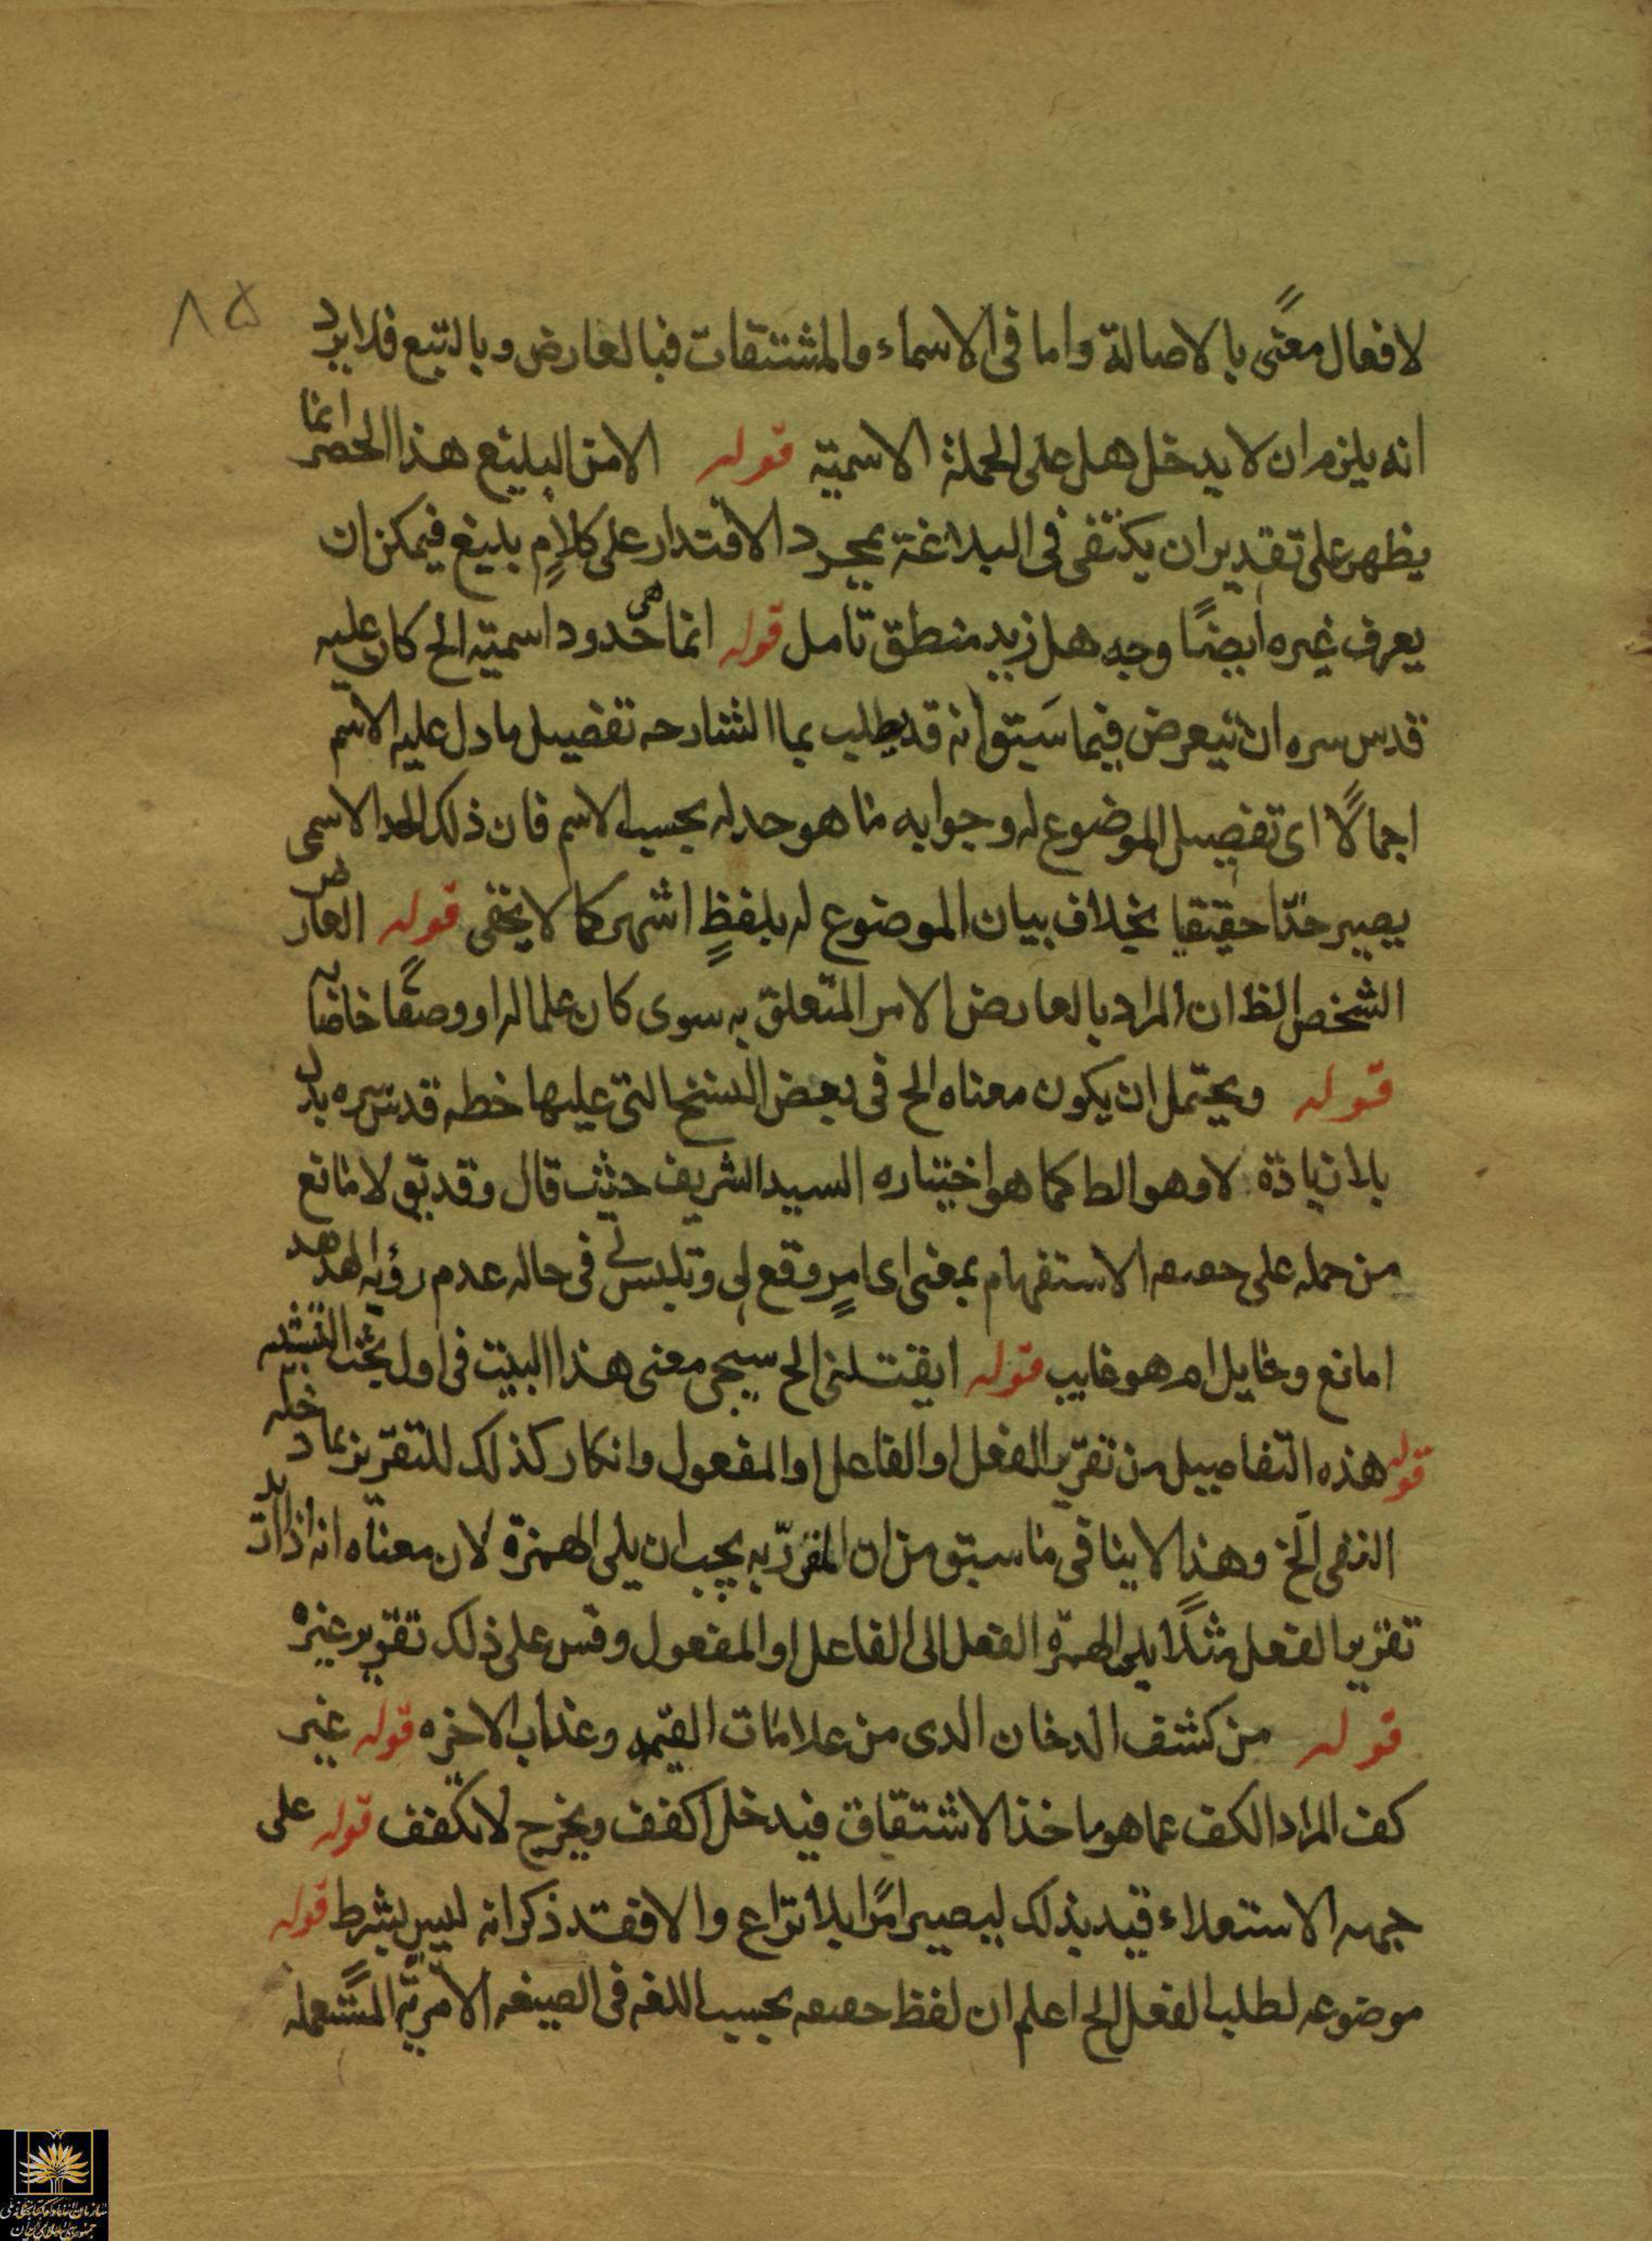 ٨٥
لافعال معنًى بالاصالة واما فى الاسماء والمشتقات فبالعارض وبالتبع فلا يرد
انه يلزم ان لا يدخل هل على الجملة الاسمية قوله الا من البليغ هذا الحصر انما
يظهر على تقدير ان يكتفى فى البلاغة بمجرد الاقتدار على كلامٍ بليغ فيمكن ان
يعرف غيره ايضًا وجه هل زيد منطق تامل قوله انما هى حدود اسمية الخ كان عليه
قدس سره ان يتعرض فيما سبق انه قد يطلب بما الشارحه تفصيل ما دل عليه الاسم
اجمالًا اى تفصيل الموضوع له وجوابه ما هو حد له بحسب الاسم فان ذلك الحد الاسمى
يصير حدّا حقيقيا بخلاف بيان الموضوع له بلفظٍ اشهر كما لا يخفى قوله العارض
الشخص الظ ان المراد بالعارض الامر المتعلق به سوى كان علما له او وصفًا خاصا به
قوله ويحتمل ان يكون معناه الخ فى بعض النسخ التى عليها خطه قدس سره بدل
بلا زيادة لا وهو الظ كما هو اختياره السيد الشريف حيث قال وقد يق لا مانع
من حمله على حصصه الاستفهام بمعنى اى امرٍ وقع لى وتلبس لى فى حاله عدم رؤية الهدهد
امانع وحايل ام هو غايب قوله ايقتلنى الخ سيجى معنى هذا البيت فى اول بحث التشبيه
قوله هذه التفاصيل من تقرير الفعل او الفاعل او المفعول وانكار كذلك للتقرير بما دخله
النفى الخ وهذا لا ينافى ما سبق من ان المقرّر به يجب ان يلى الهمزة لان معناه انه اذا اريد
تقرير الفعل مثلًا يلى الهمزة الفعل الى الفاعل او المفعول وقس على ذلك تقرير غيره
قوله من كشف الدخان الدى من علامات القيمه وعذاب الاخره قوله غير
كف المراد الكف عما هو ماخذ الاشتقاق فيدخل اكفف ويخرج لا تكفف قوله على
جهه الاستعلاء قيد بذلك ليصير امرًا بلا نزاع والا فقد ذكر انه ليس بشرط قوله
موضوعه لطلب الفعل الخ اعلم ان لفظ حصصه بحسب اللغه فى الصيغه الامريّه المستعمله